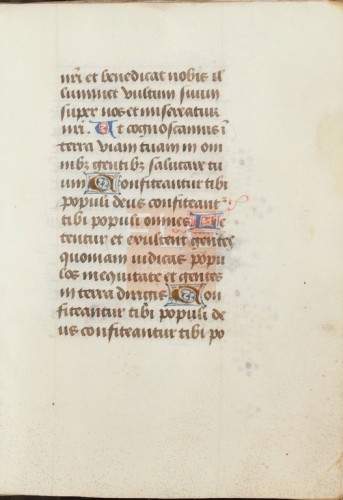 nr̄i et benedicat nobis il
luminet vultum suum
super nos et misereatur
nr̄i. Ut cognoscamus ī
terra viam tuam in om
nibꝫ gentibꝫ salutare tu
um Confiteantur tibi
populi deus confiteant᷑
tibi populi omnes Le
tentur et exultent gentes
quoniam iudicas popu
los in equitate et gentes
in terra dirigis Con
fiteantur tibi populi de
us confiteantur tibi po